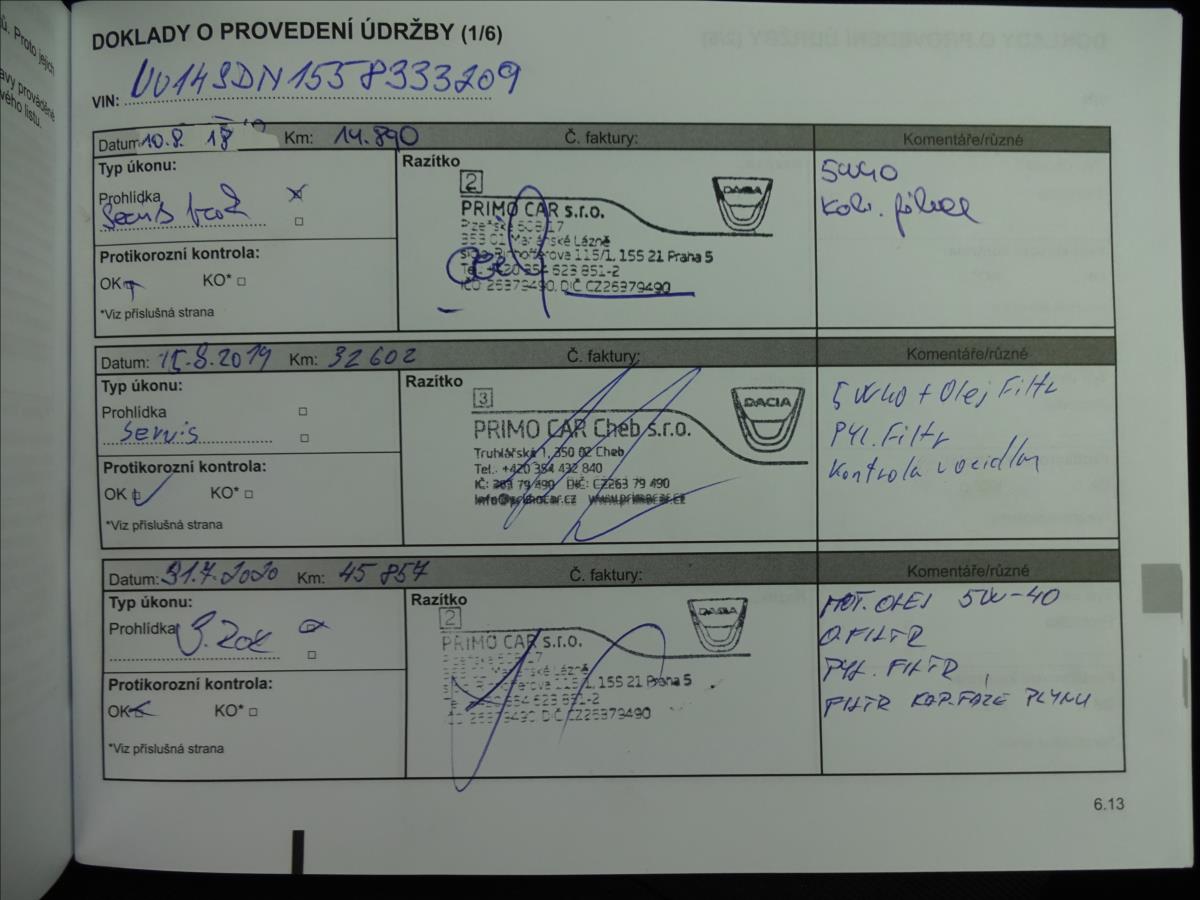 ů. Proto jejich
avy prováděné
vého listu.
DOKLADY O PROVEDENÍ ÚDRŽBY (1/6)
VIN: UU14SDN1558333209
Datum 10.8. 18 Km: 14.890 Č. faktury: Komentáře/různé
Typ úkonu:
Prohlídka
Razítko
2
DACIA
PRIMO CAR s.r.o.
Plzeňská 508/17
353 01 Mariánské Lázně
115/1, 155 21 Praha 5
Tel.: +420 354 623 851-2
IČO: 26379490, DIČ CZ26379490
5W40
Protikorozní kontrola:
OK KO*
*Viz příslušná strana
Datum: 15.8.2019 Km: 32602 Č. faktury: Komentáře/různé
Typ úkonu:
Prohlídka
Servis
Razítko
3
DACIA
PRIMO CAR Cheb s.r.o.
Truhlářská 1, 350 02 Cheb
Tel.: +420 354 432 840
IČ: 263 79 490 DIČ: CZ263 79 490
info@primocar.cz www.primocar.cz
5W40 + Olej Filtr
PYL. Filtr
Kontrola vozidla
Protikorozní kontrola:
OK KO*
*Viz příslušná strana
Datum: 31.7.2020 Km: 45 857 Č. faktury: Komentáře/různé
Typ úkonu:
Prohlídka 3. rok
Razítko
2
DACIA
PRIMO CAR s.r.o.
Plzeňská 508/17
Mariánské Lázně
115/1, 155 21 Praha 5
Tel.: +420 354 623 851-2
IČO: 26379490, DIČ CZ26379490
MOT. OLEJ 5W-40
O. FILTR
PYL. FILTR
FILTR KAP. FAZE PLYNU
Protikorozní kontrola:
OK KO*
*Viz příslušná strana
6.13